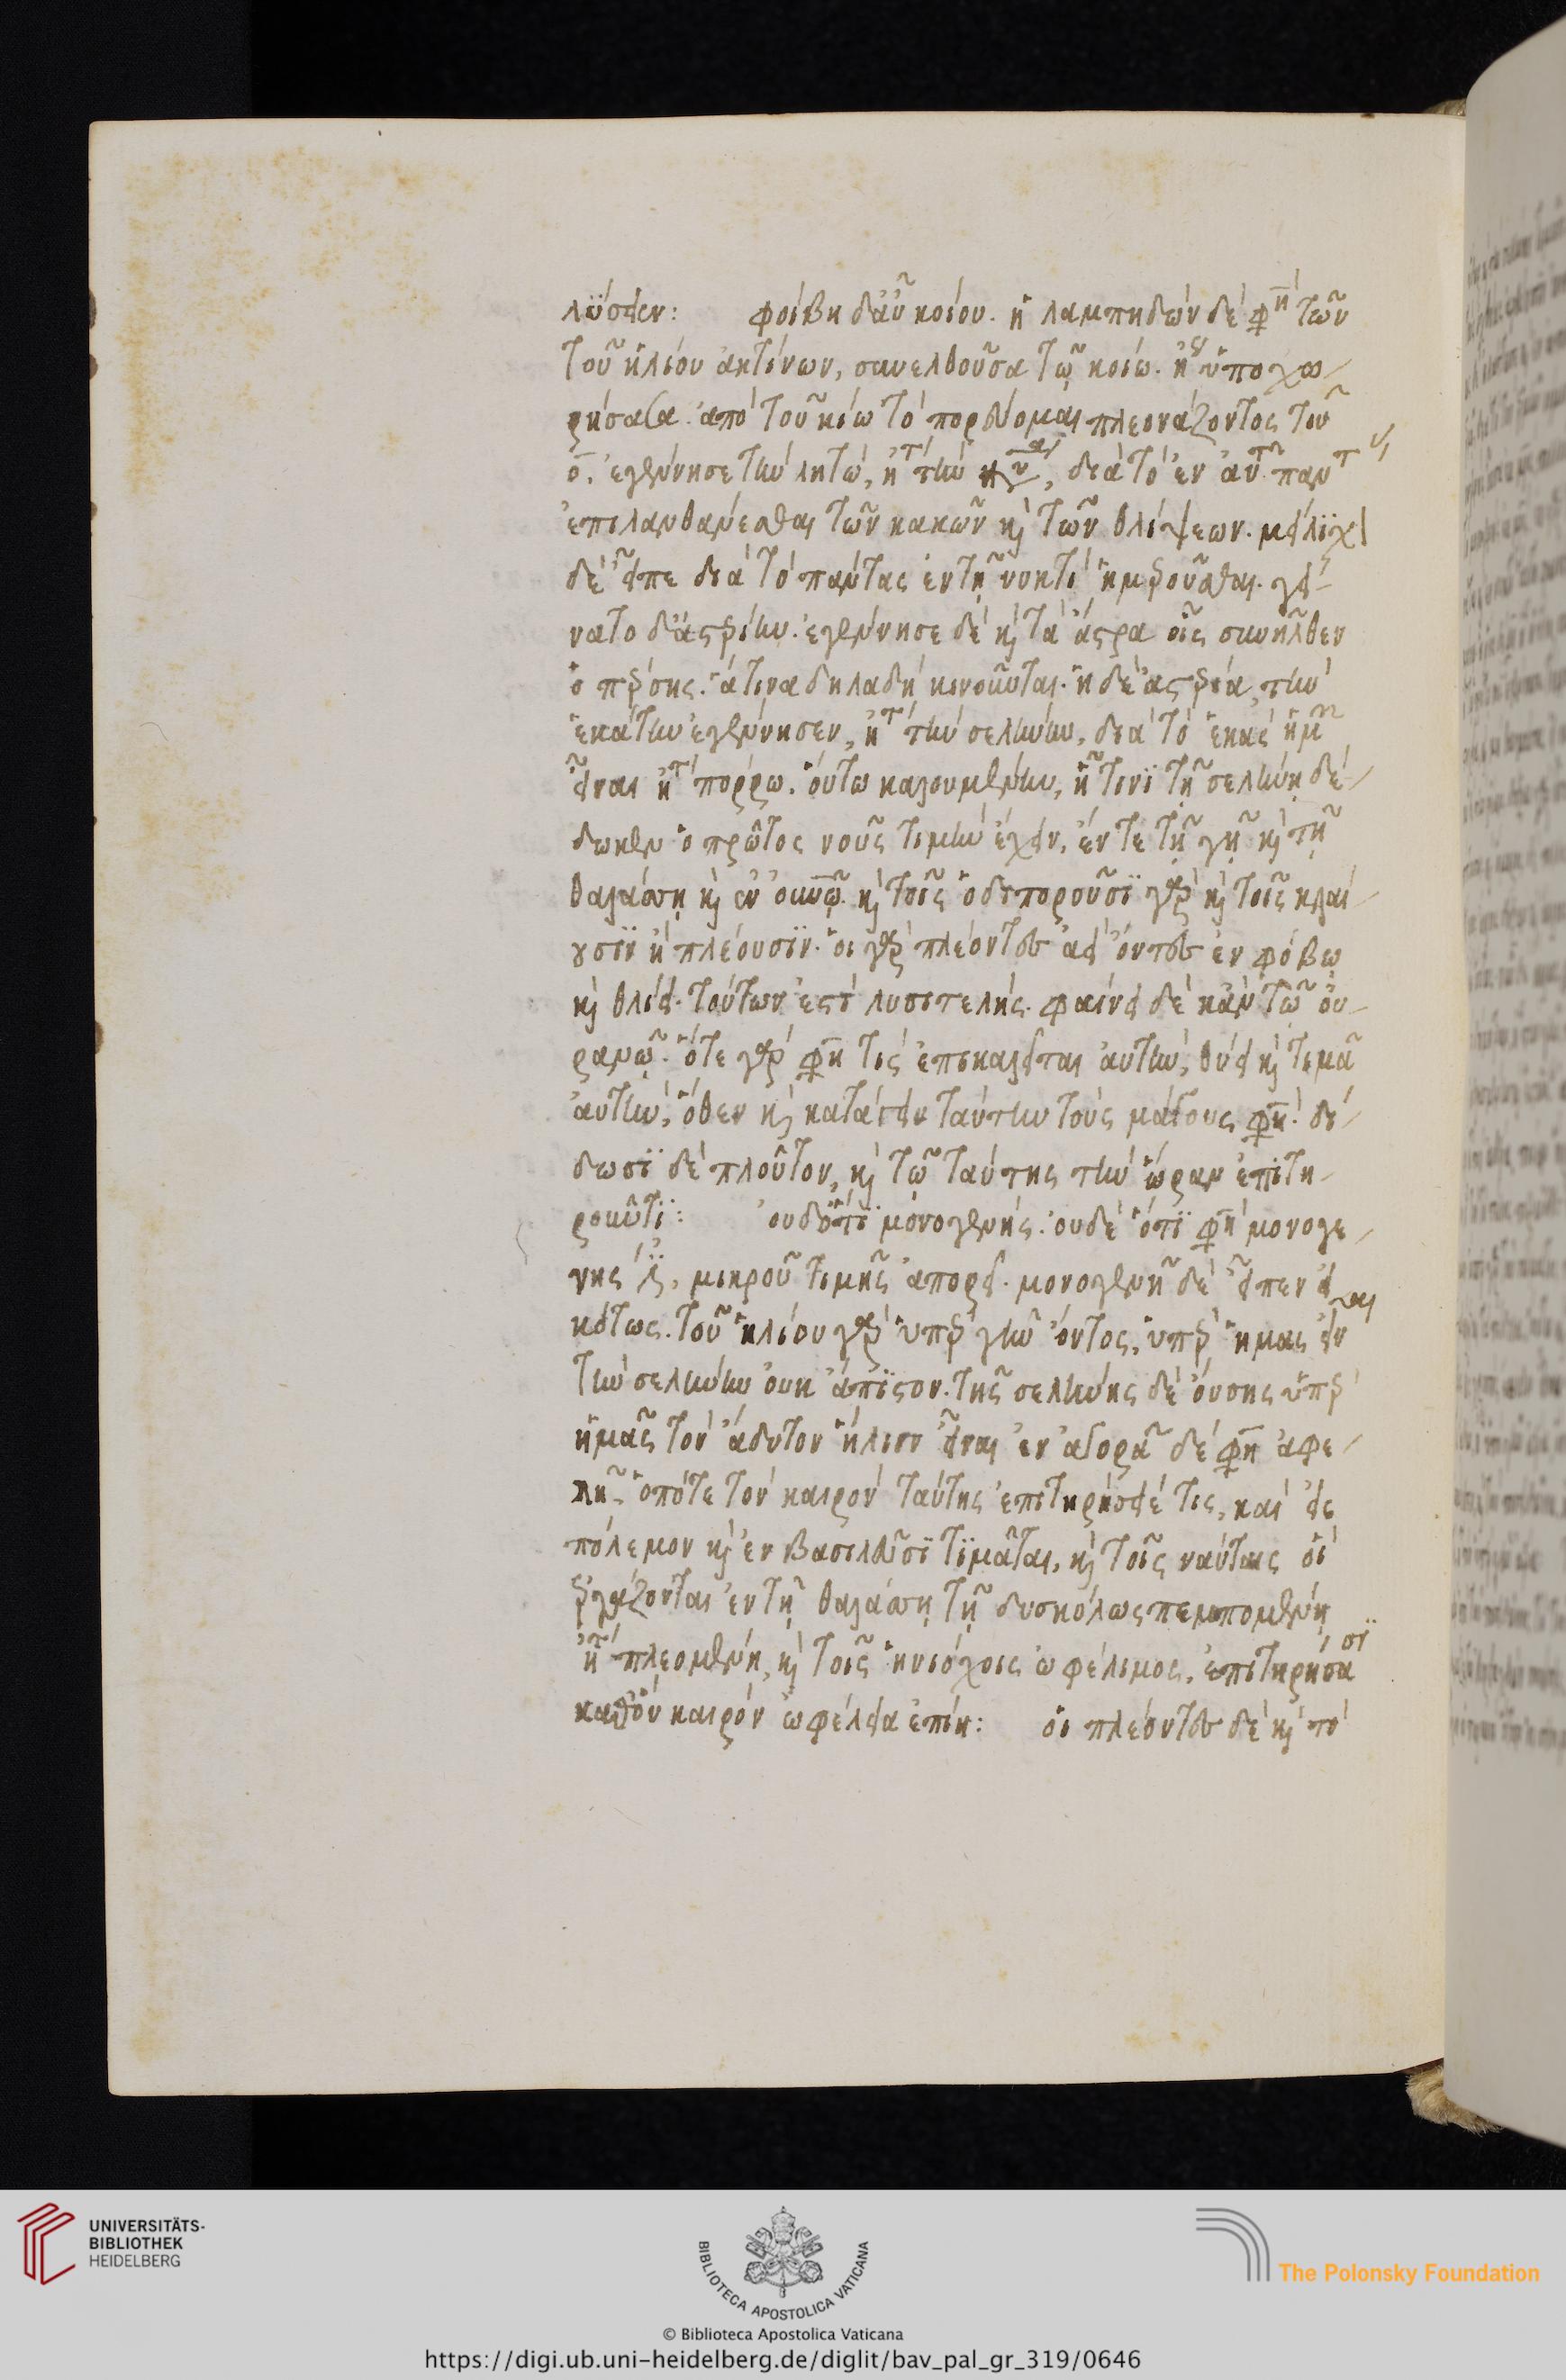 λύσειεν: φοίβη δ᾽ αὖ κοίου. ἡ λαμπηδὼν δέ φη τῶν
τοῦ ἡλίου ἀκτίνων, συνελθοῦσα τῷ κοίῳ. ἢ ὑποχω-
ρήσασα. ἀπὸ τοῦ κίω τὸ πορεύομαι πλεονάζοντος τοῦ
ο. ἐγέννησε τὴν λητώ, ἤτοι τὴν νύκτα, διὰ τὸ ἐν αὐτῇ πάντας
ἐπιλανθάνεσθαι τῶν κακῶν καὶ τῶν θλίψεων. μείλιχον
δὲ εἶπε διὰ τὸ πάντας ἐν τῇ νυκτὶ ἡμεροῦσθαι. γεί-
νατο δ᾽ ἀστερίην. ἐγέννησε δὲ καὶ τὰ ἄστρα οἷς συνῆλθεν
ὁ πέρσης. ἅτινα δηλαδὴ κινοῦνται. ἡ δὲ ἀστερία, τὴν
ἑκάτην ἐγέννησεν, ἤτοι τὴν σελήνην, διὰ τὸ ἑκὰς ἡμῶν
εἶναι ἤτοι πόρρω. οὕτω καλουμένην, ᾗ τινι τῇ σελήνῃ δέ-
δωκεν ὁ πρῶτος νοῦς τιμὴν ἔχειν, ἔν τε τῇ γῇ καὶ τῇ
θαλάσσῃ καὶ ἐν οὐνῷ. καὶ τοῖς ὁδοιποροῦσι γὰρ καὶ τοῖς κλαί-
ουσιν ἢ πλέουσιν. οἱ γὰρ πλέοντες ἀεὶ ὄντες ἐν φόβῳ
καὶ θλίψει. τούτων ἐστὶ λυσιτελής. φαίνει δὲ κἀν τῷ οὐ-
ρανῷ. ὅτε γάρ φη τις ἐπικαλεῖται αὐτήν, θύει καὶ τιμᾷ
αὐτήν, ὅθεν καὶ κατάγειν ταύτην τοὺς μάγους φη. δί-
δωσι δὲ πλοῦτον, καὶ τῷ ταύτης τὴν ὥραν ἐπιτη-
ροῦντι: οὐδ᾽ ὅτι μονογενής. οὐδὲ ὅτι φη μονογε-
νής μικροῦ τιμῆς ἀπορεῖ. μονογενῆ δὲ εἶπεν εἰ-
κότως. τοῦ ἡλίου γὰρ ὑπὲρ γῆν ὄντος, ὑπὲρ ἡμᾶς εἶναι
τὴν σελήνην οὐκ ἄπιστον. τῆς σελήνης δὲ οὔσης ὑπὲρ
ἡμᾶς τὸν ἄδυτον ἥλιον εἶναι ἐν ἀγορᾷ δέ φη ἀφε-
λῇ. ὁπότε τὸν καιρὸν ταύτης ἐπιτηρήσειέ τις, καὶ εἰς
πόλεμον καὶ ἐν βασιλεῦσι τιμᾶται, καὶ τοῖς ναύταις οἳ
ἐργάζονται ἐν τῇ θαλάσσῃ τῇ δυσκόλως πεμπομένῃ
ἤτοι πλεομένῃ, καὶ τοῖς ἡνιόχοις ὠφέλιμος, ἐπιτηρήσασι
καθ᾽ ὃν καιρὸν ὠφέλεια ἐπίῃ: οἱ πλέοντες δὲ καὶ τὸ
UNIVERSITÄTS-
BIBLIOTHEK
HEIDELBERG
BIBLIOTECA APOSTOLICA VATICANA
© Biblioteca Apostolica Vaticana
The Polonsky Foundation
https://digi.ub.uni-heidelberg.de/diglit/bav_pal_gr_319/0646